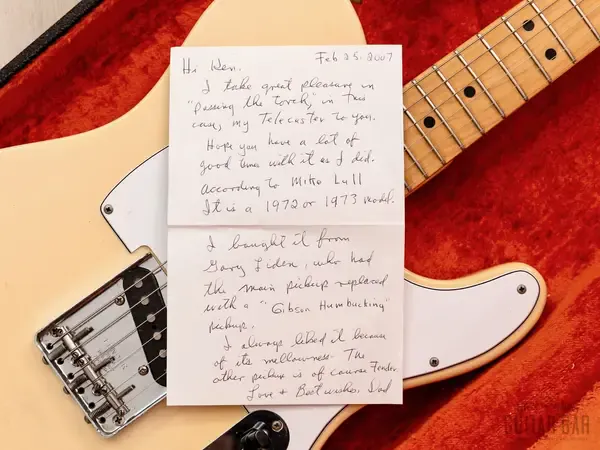 Feb 25. 2007
Hi Ken.
I take great pleasure in
"passing the torch," in this
case, my Telecaster to you.
Hope you have a lot of
good times with it as I did.
According to Mike Lull
It is a 1972 or 1973 model.
I bought it from
Gary Liden, who had
the main pickup replaced
with a "Gibson Humbucking"
pickup.
I always liked it because
of its mellowness. The
other pickup is of course Fender
Love + Best wishes, Dad
GUITAR BAR